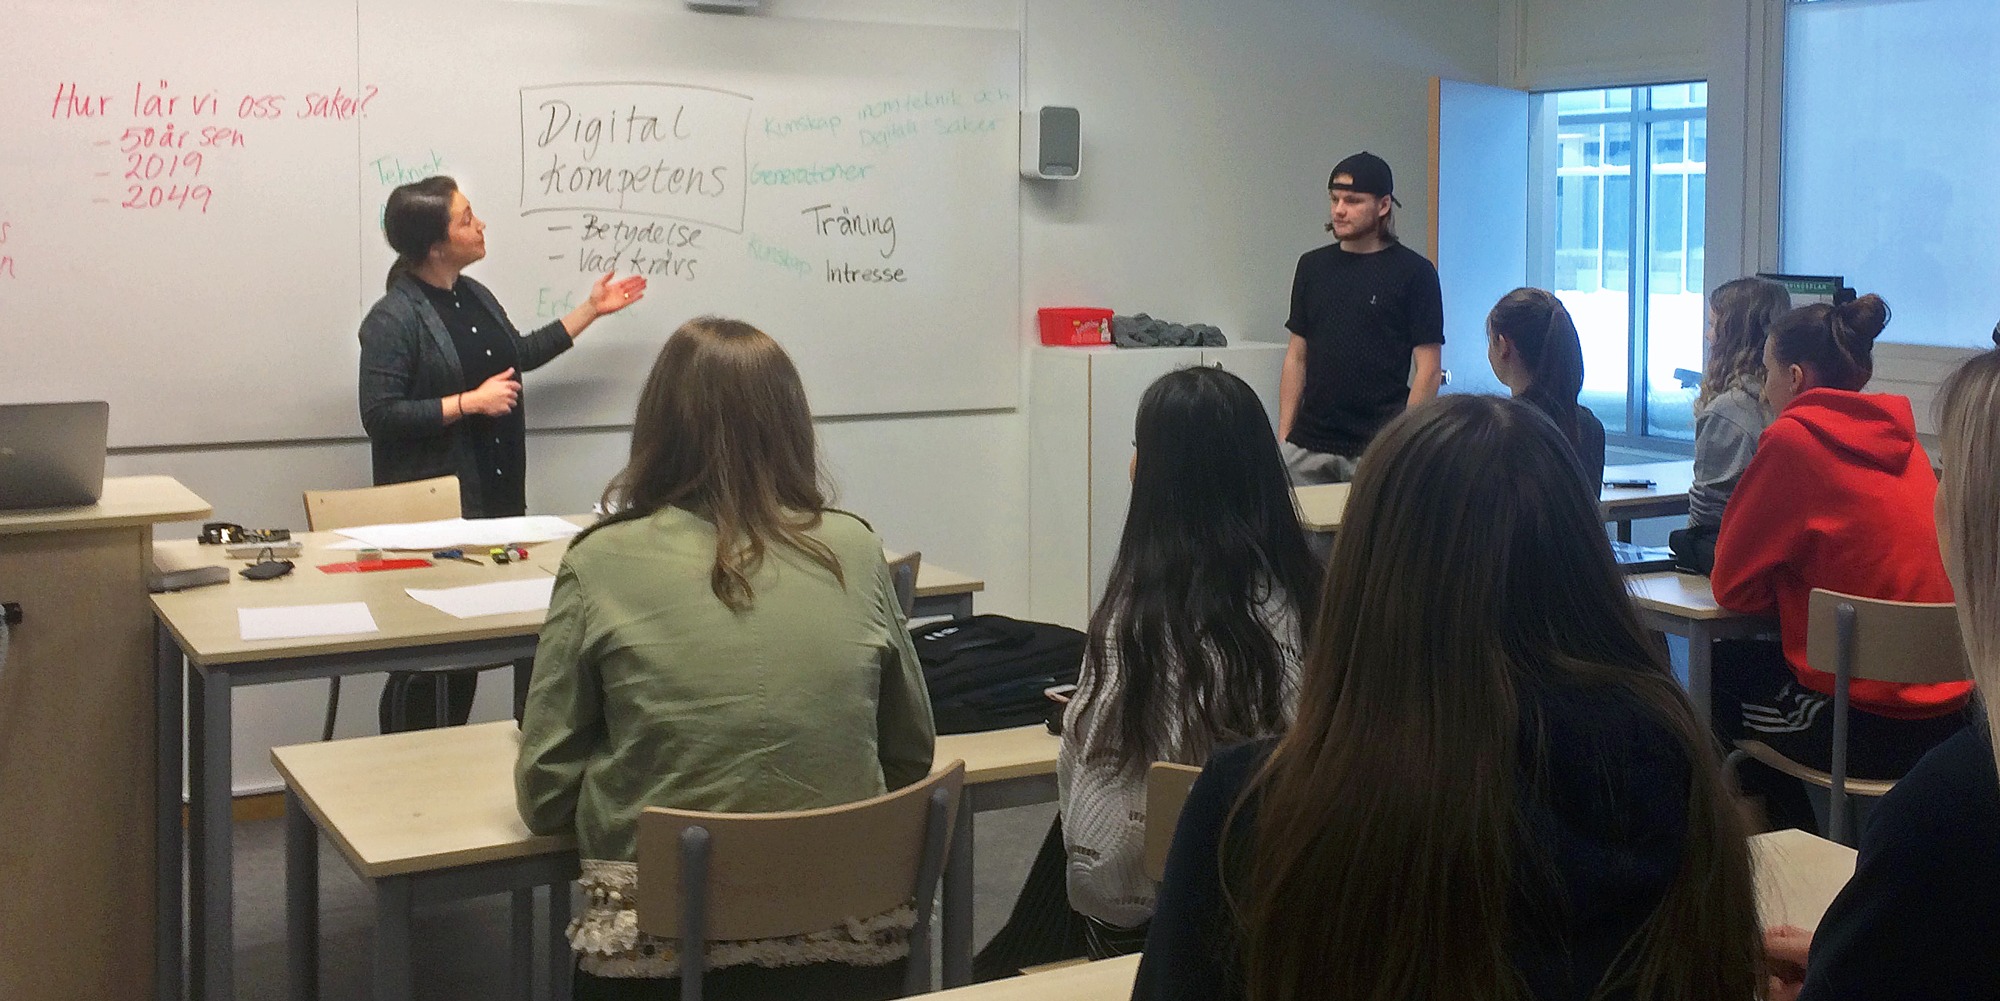 Hur lär vi oss saker?
- 50 år sen
- 2019
- 2049
Teknisk
Digital
kompetens
- Betydelse
- Vad krävs
Kunskap inom teknik och
Digitala saker
Generationer
Träning
Kunskap
Intresse